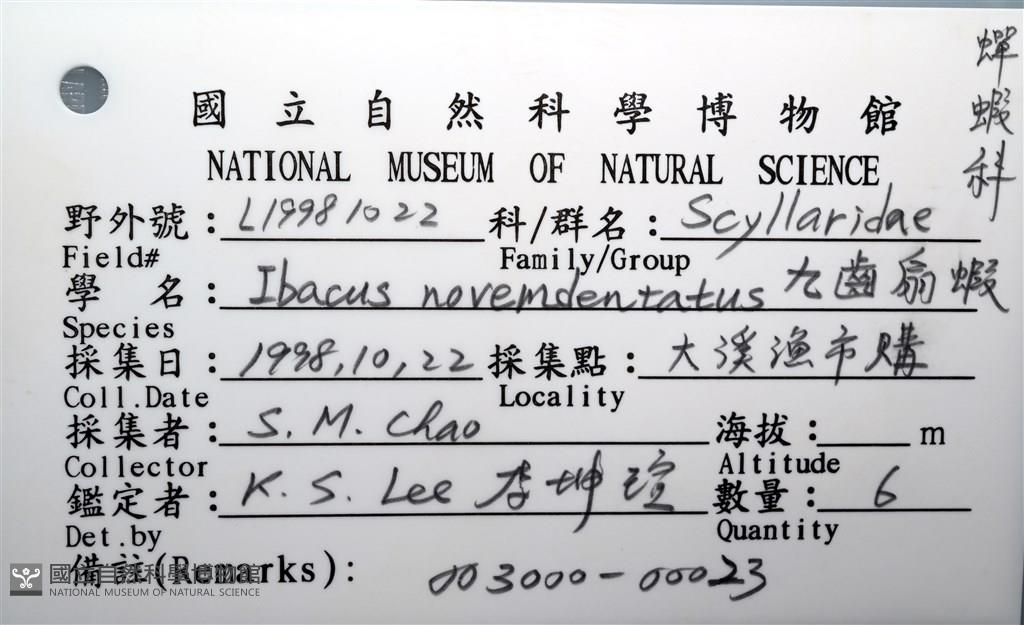 蟬蝦科
國立自然科學博物館
NATIONAL MUSEUM OF NATURAL SCIENCE
野外號: L1998 10 22 科/群名: Scyllaridae
Field# Family/Group
學 名: Ibacus novemdentatus 九齒扇蝦
Species
採集日: 1998,10,22 採集點: 大溪漁市購
Coll.Date Locality
採集者: S. M. Chao 海拔: m
Collector Altitude
鑑定者: K. S. Lee 李坤瑄 數量: 6
Det.by Quantity
備註(Remarks): 003000-00023
國立自然科學博物館
NATIONAL MUSEUM OF NATURAL SCIENCE